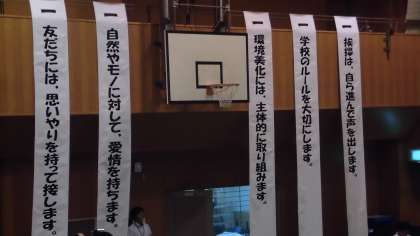 一 挨拶は、自ら進んで声を出します。
一 学校のルールを大切にします。
一 環境美化には、主体的に取り組みます。
一 自然やモノに対して、愛情を持ちます。
一 友だちには、思いやりを持って接します。